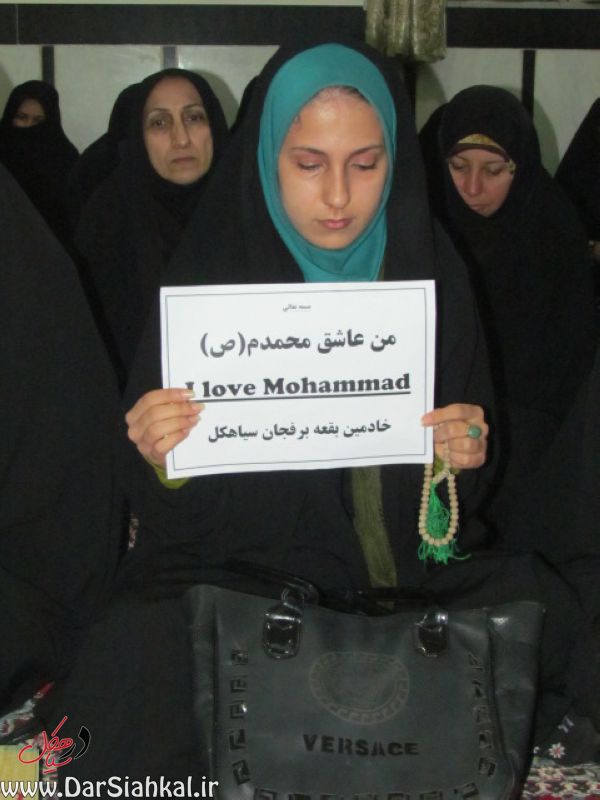 بسمه تعالی
من عاشق محمدم(ص)
I love Mohammad
خادمین بقعه برفجان سیاهکل
VERSACE
www.DarSiahkal.ir